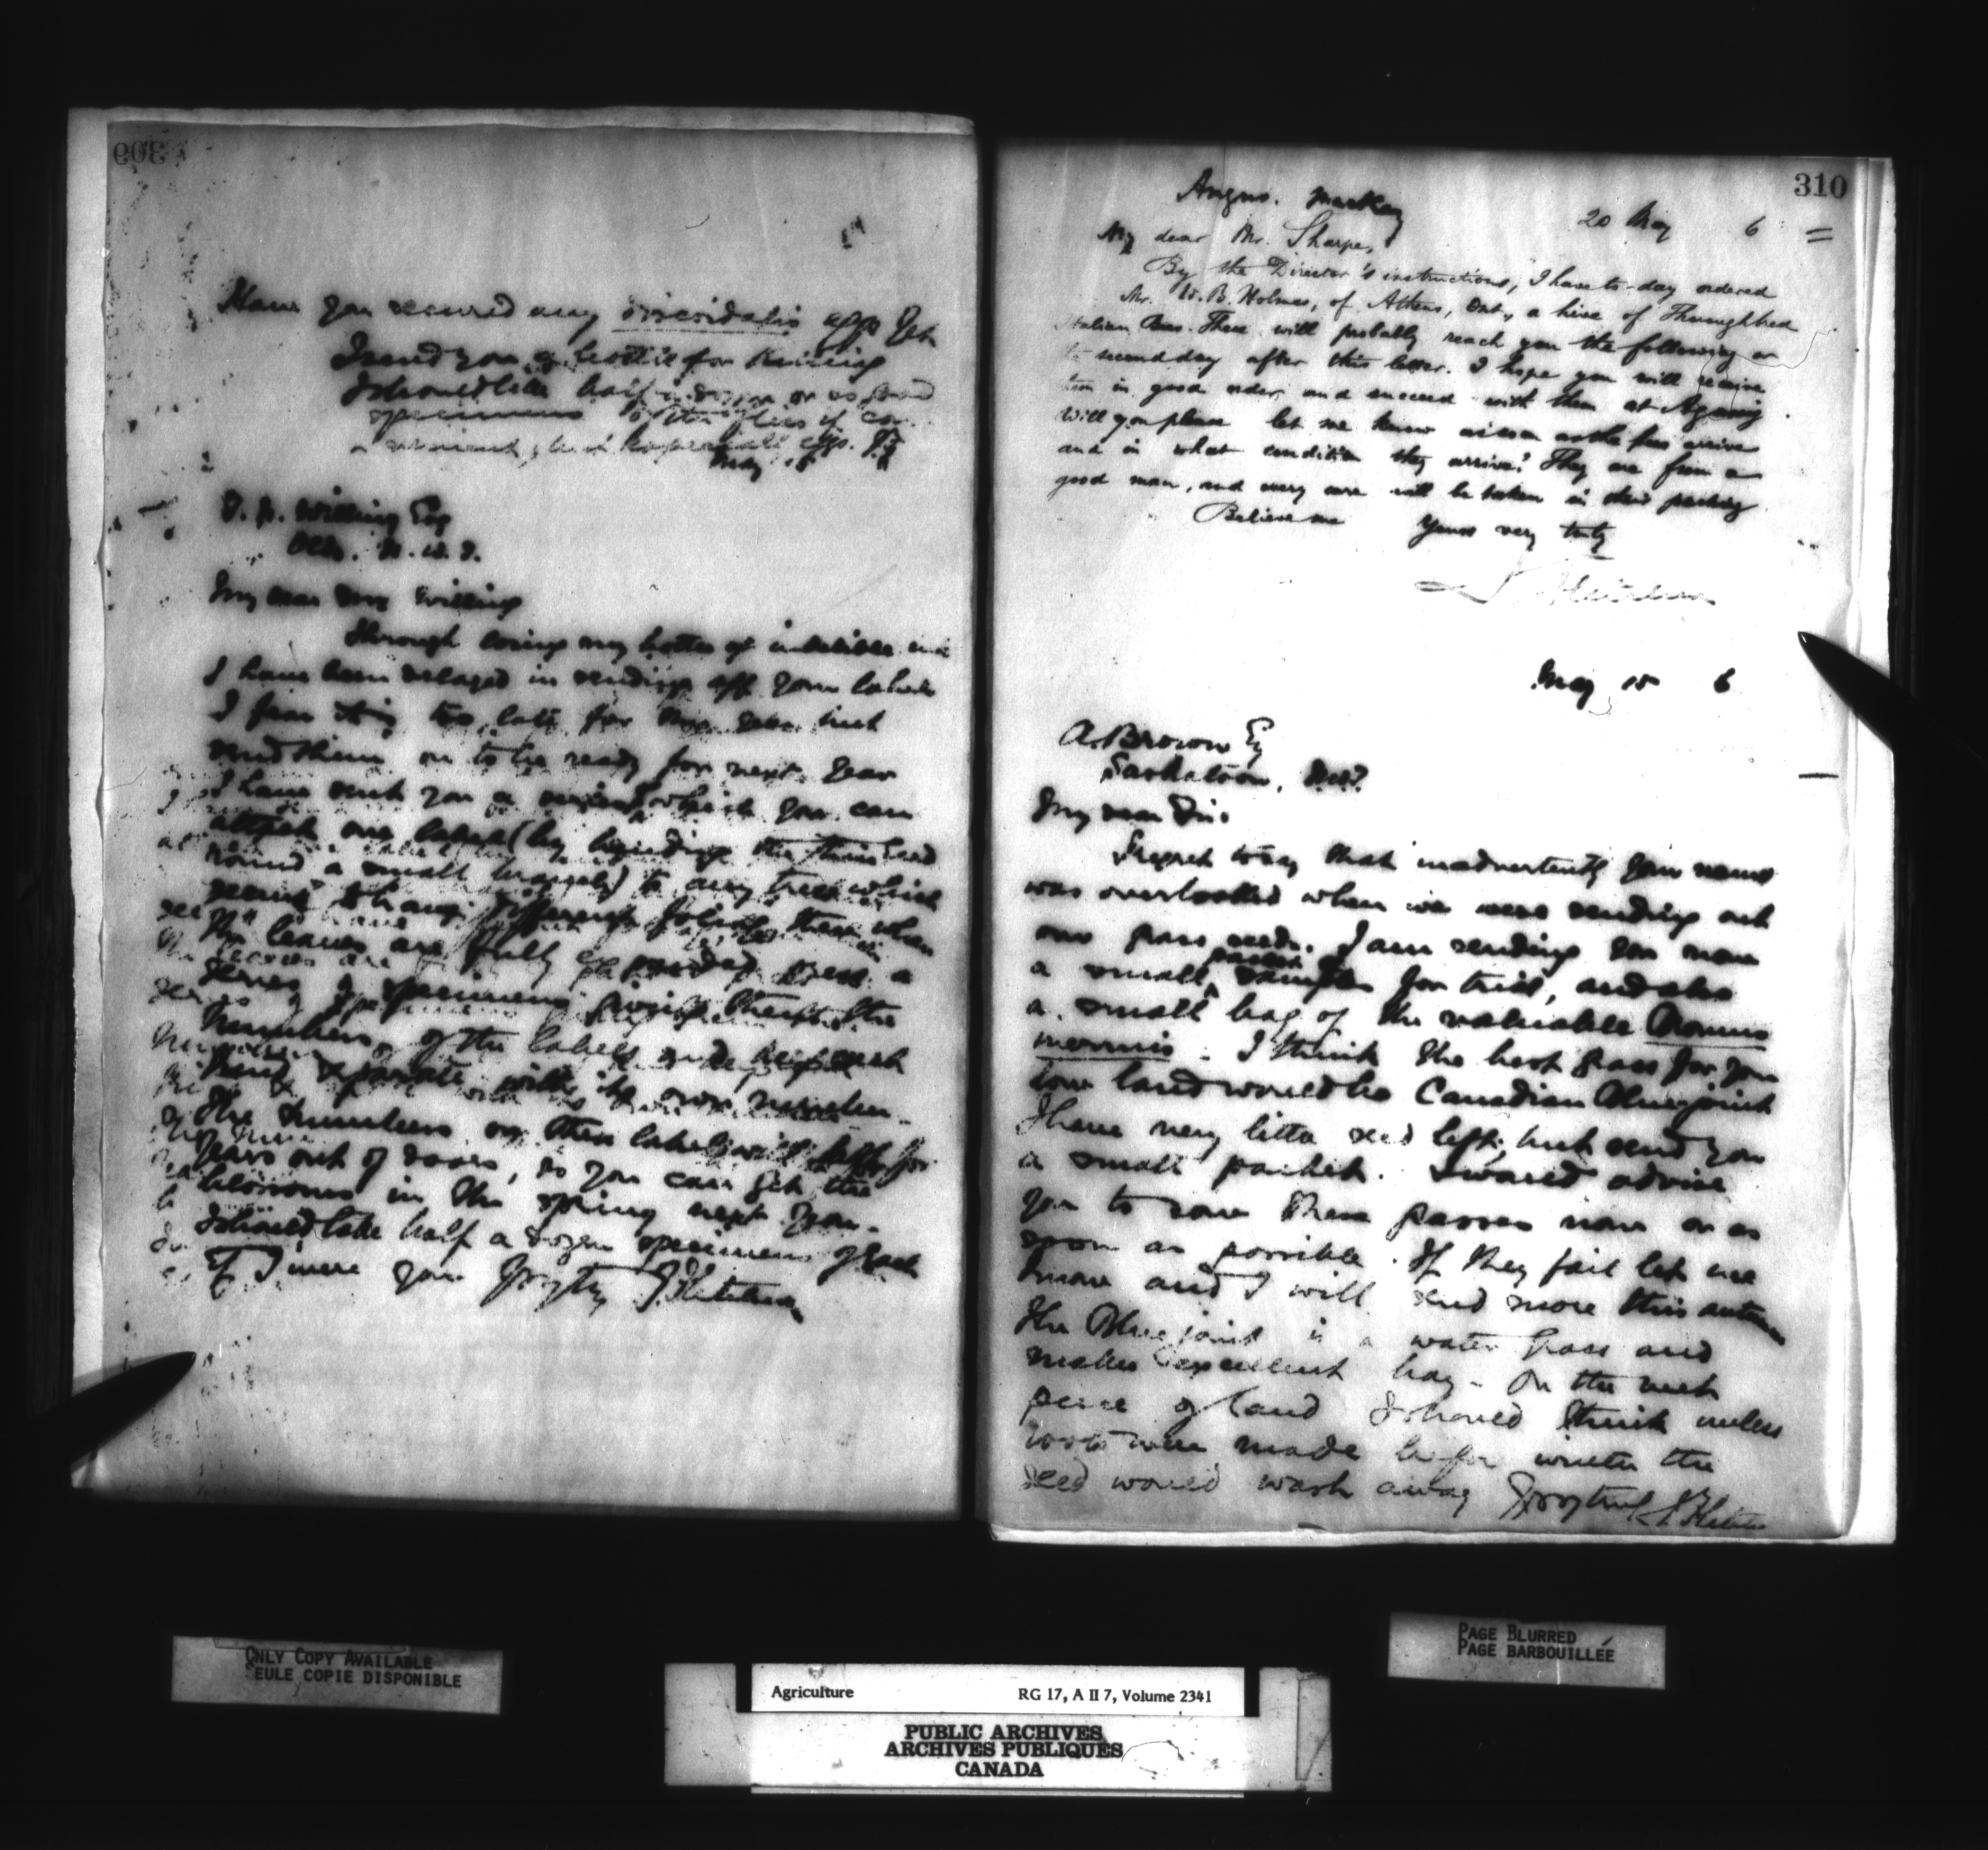 309
Have you secured any viridalis eggs yet
I send you a bottle for killing
I should like half a dozen or so good
specimens of the flies if con-
venient, but especially eggs. J.F.
May 15
T. N. Willing Esq
Olds. N.W.T.
My dear Mr Willing
Through losing my bottle of indelible ink
I have been delayed in sending off your labels
I fear it is too late for this year but
send them on to be ready for next year
I have sent you a which you can
attach one label (by bending the thin end
round a small branch) to any tree which
seems to have different foliage then when
the leaves are fully expanded press a
series of specimens giving them the
numbers of the labels and keep each
kind separate with its own number.
The numbers on these labels will last for
years out of doors, so you can get the
blossoms in the spring next year.
I should take half a dozen specimens of each
if I were you Yrs try J. Fletcher
310
Angus. Mackay
20 May 6
My dear Mr. Sharpe,
By the Director's instructions, I have to-day ordered
Mr. W. B. Holmes, of Athens, Ont., a hive of Thoroughbred
Italian Bees. These will probably reach you the following or
the second day after this letter. I hope you will receive
them in good order and succeed with them at Agassiz
Will you please let me know as soon as the bees arrive
and in what condition they arrive? They are from a
good man, and every care will be taken in their packing
Believe me Yours very truly
J. Fletcher
May 15 6
A. Brown Esq
Saskatoon, N.W.T.
My dear Sir.
I regret to say that inadvertently your name
was overlooked when we were sending out
our grass seeds. I am sending you now
a small packet of samples for trial, and also
a small bag of the valuable Bromus
inermis. I think the best grass for your
low land would be Canadian Blue joint
I have very little seed left, but send you
a small packet. I would advise
you to sow these grasses now or as
soon as possible. If they fail let me
know and I will send more this autumn
The Blue joint is a water grass and
makes excellent hay - On the wet
piece of land I should think unless
roots were made before winter the
seed would wash away Yrs try J. Fletcher
ONLY COPY AVAILABLE
SEULE COPIE DISPONIBLE
PAGE BLURRED
PAGE BARBOUILLÉE
Agriculture RG 17, A II 7, Volume 2341
PUBLIC ARCHIVES
ARCHIVES PUBLIQUES
CANADA